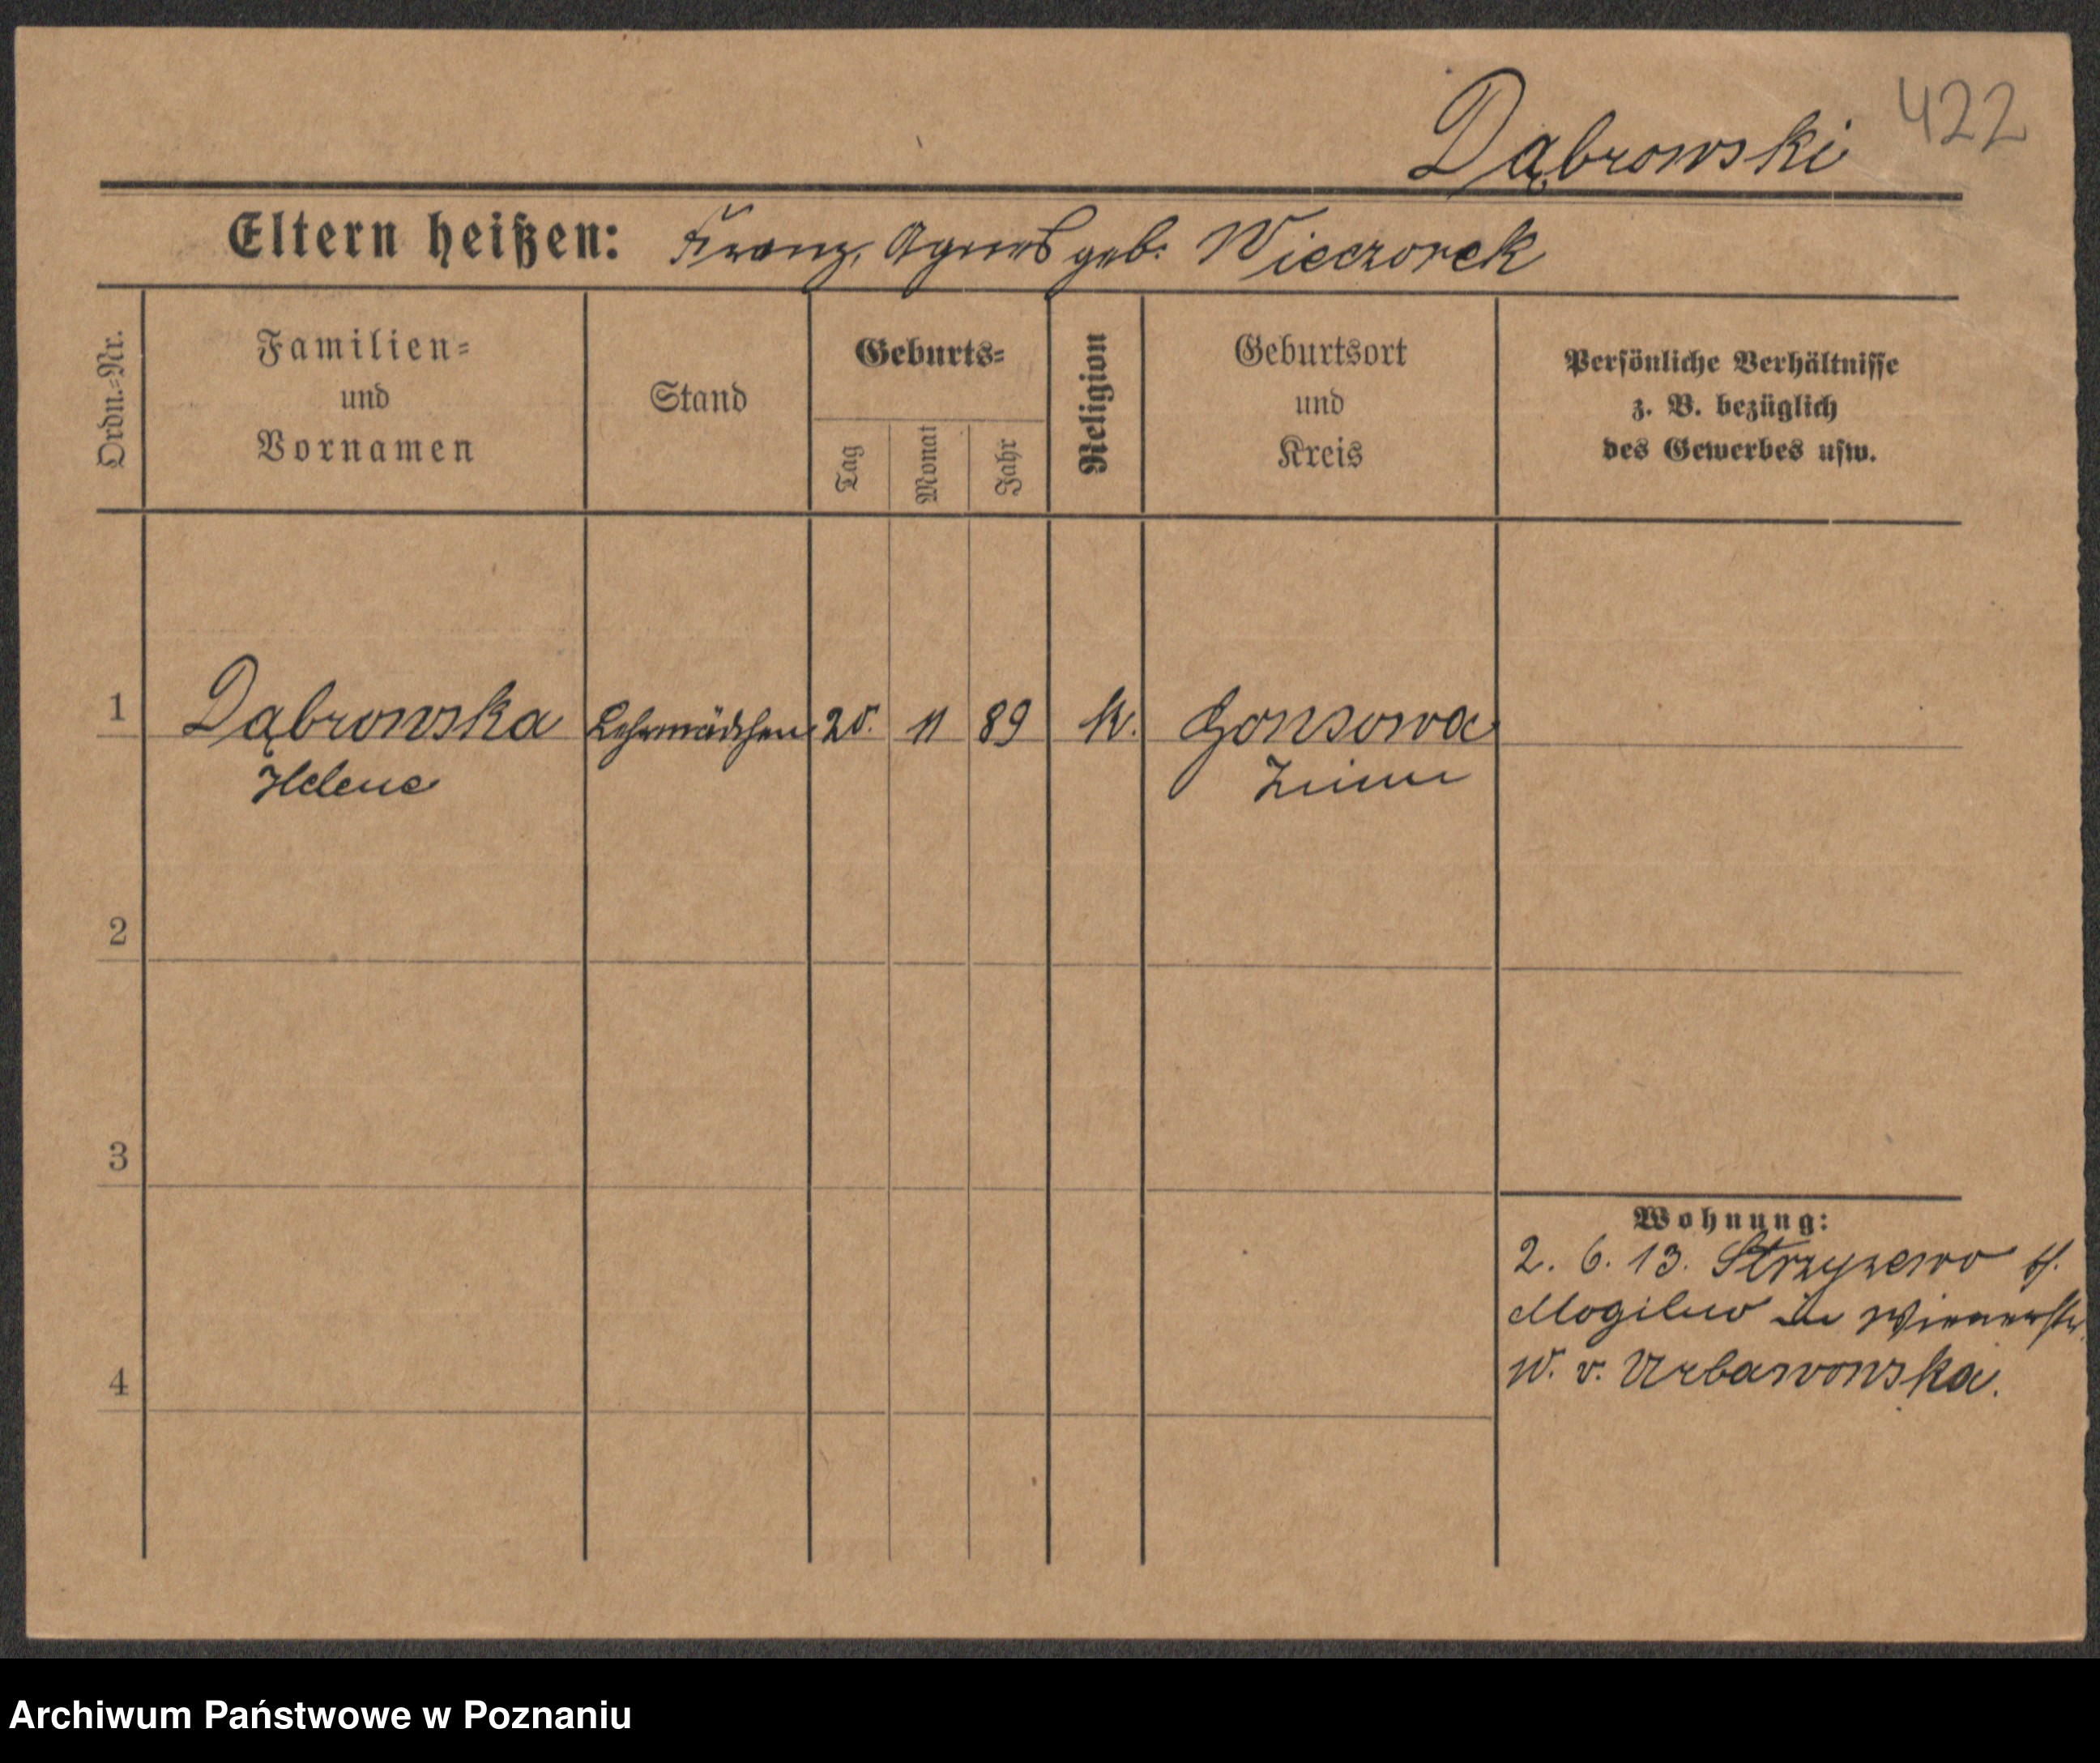 422
Dąbrowski
Eltern heißen: Franz, Agnes geb. Wieczorek
Ordn.=Nr.
Familien=
und
Vornamen
Stand
Geburts=
Tag
Monat
Jahr
Religion
Geburtsort
und
Kreis
Persönliche Verhältnisse
z. B. bezüglich
des Gewerbes usw.
1 Dąbrowska Lehrmädchen 25. 11 89 K. Gonsowa
Helene Znin
2
3
4
Wohnung:
2. 6. 13. Strzyzewo
Mogilno
W. v. Urbanowska.
Archiwum Państwowe w Poznaniu